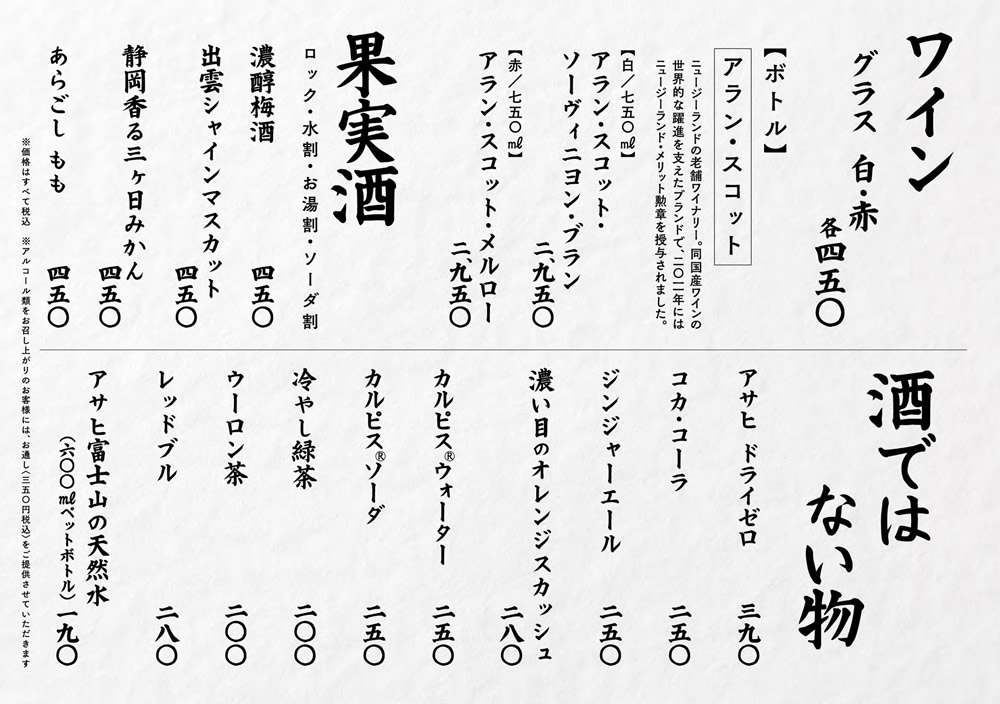 ワイン
グラス 白・赤
各四五〇
【ボトル】
アラン・スコット
ニュージーランドの老舗ワイナリー。同国産ワインの
世界的な躍進を支えたブランドで、二〇一一年には
ニュージーランド・メリット勲章を授与されました。
【白／七五〇㎖】
アラン・スコット・
ソーヴィニヨン・ブラン
二、九五〇
【赤／七五〇㎖】
アラン・スコット・メルロー
二、九五〇
果実酒
ロック・水割・お湯割・ソーダ割
濃醇梅酒
四五〇
出雲シャインマスカット
四五〇
静岡香る三ヶ日みかん
四五〇
あらごし もも
四五〇
酒では
ない物
アサヒ ドライゼロ
三九〇
コカ・コーラ
二五〇
ジンジャーエール
二五〇
濃い目のオレンジスカッシュ
二八〇
カルピス®ウォーター
二五〇
カルピス®ソーダ
二五〇
冷やし緑茶
二〇〇
ウーロン茶
二〇〇
レッドブル
二八〇
アサヒ富士山の天然水
（六〇〇㎖ペットボトル）一九〇
※価格はすべて税込 ※アルコール類をお召し上がりのお客様には、お通し（三五〇円税込）をご提供させていただきます